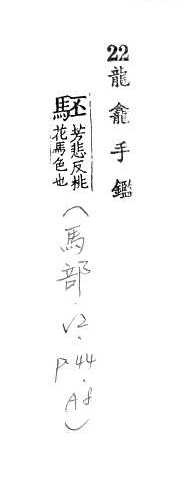 22龍龕手鑑
駓芳悲反桃
花馬色也
(馬部.V2.P.44.A8)